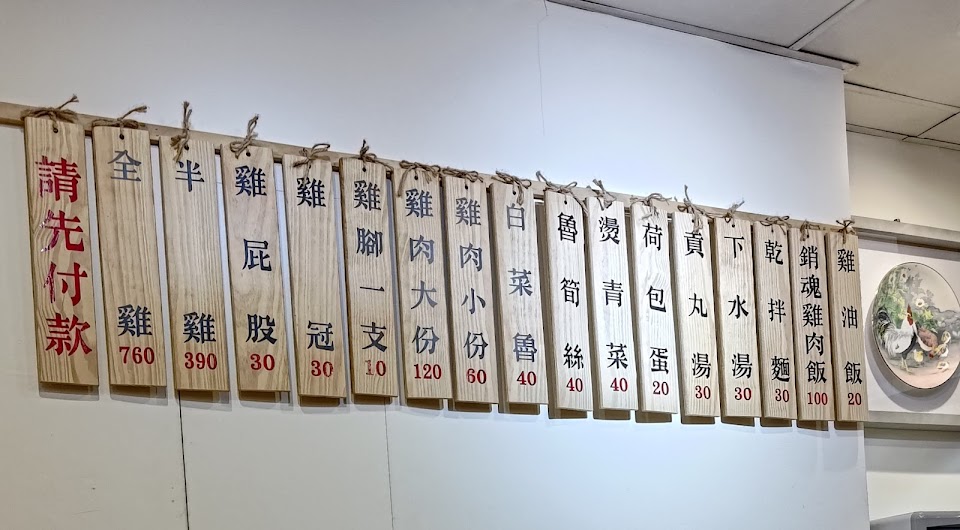 請先付款
全雞 760
半雞 390
雞屁股 30
雞冠 30
雞腳一支 10
雞肉大份 120
雞肉小份 60
白菜魯 40
魯筍絲 40
燙青菜 40
荷包蛋 20
貢丸湯 30
下水湯 30
乾拌麵 30
銷魂雞肉飯 100
雞油飯 20